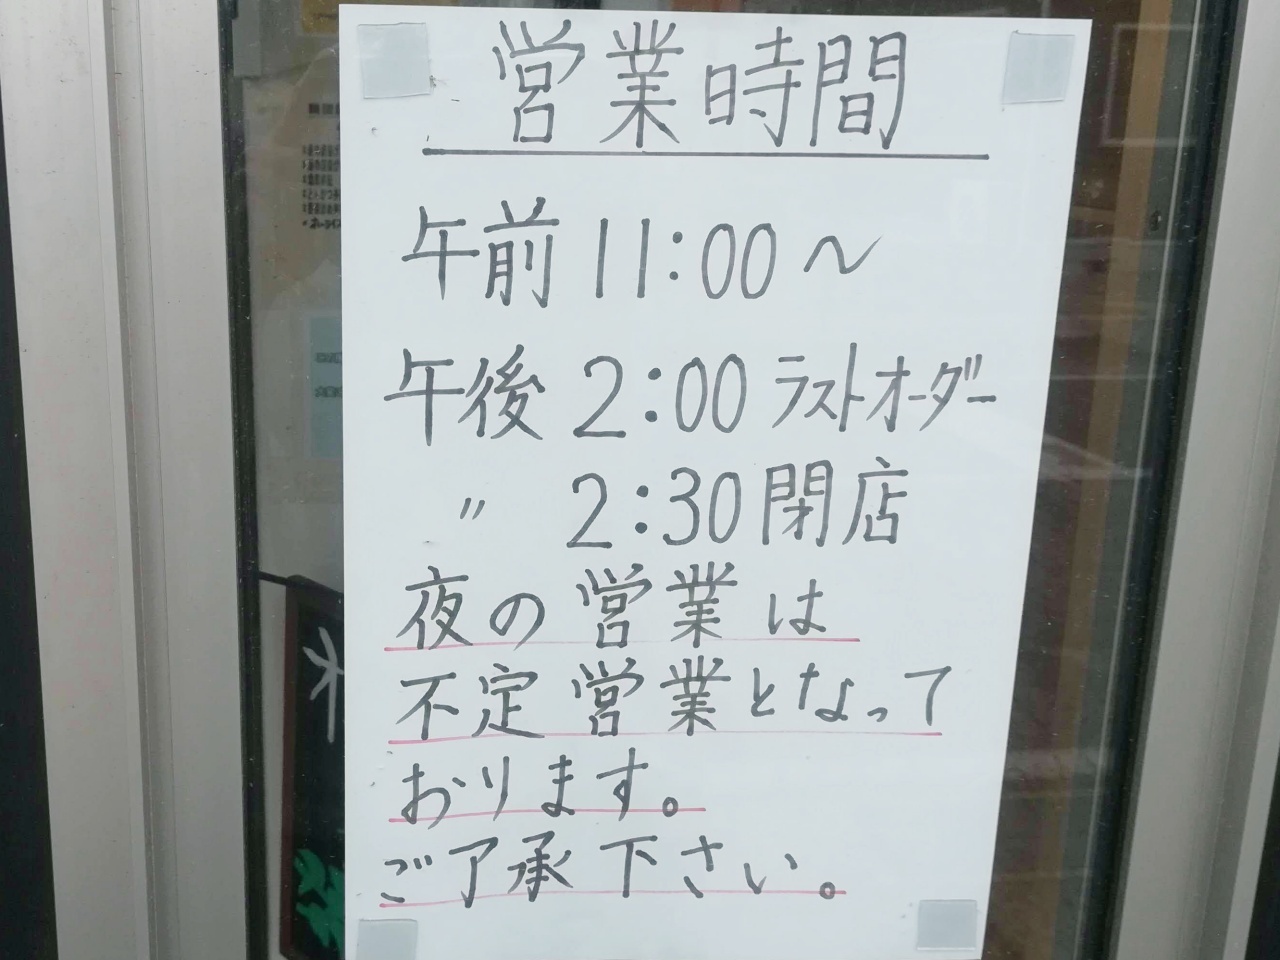 営業時間
午前11:00～
午後2:00ラストオーダー
〃 2:30閉店
夜の営業は
不定営業となって
おります。
ご了承下さい。